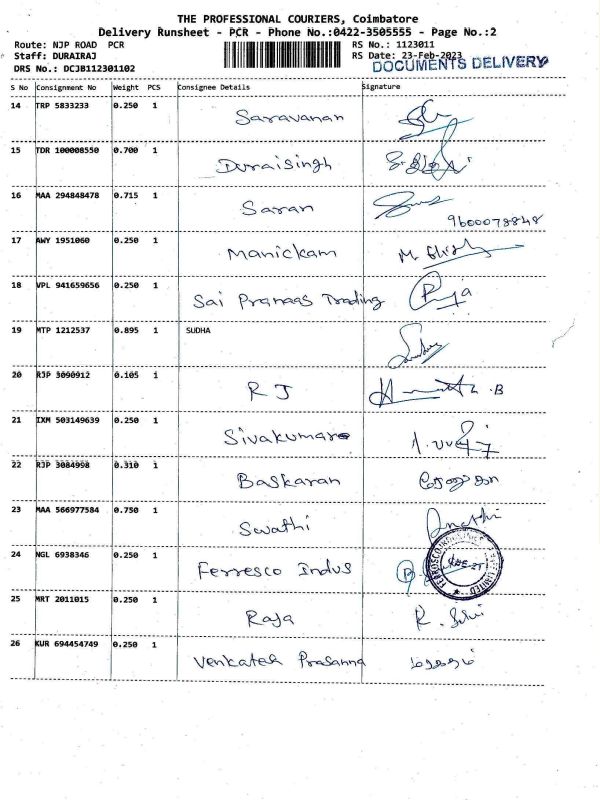 THE PROFESSIONAL COURIERS, Coimbatore
Delivery Runsheet - PCR - Phone No.:0422-3505555 - Page No.:2
Route: NJP ROAD PCR RS No.: 1123011
Staff: DURAIRAJ RS Date: 23-Feb-2023
DOCUMENTS DELIVERY
DRS No.: DCJB112301102
S No Consignment No Weight PCS Consignee Details Signature
14 TRP 5833233 0.250 1 Saravanan
15 TDR 100008550 0.700 1 Duraisingh
16 MAA 294848478 0.715 1 Saran
9600078848
17 AWY 1951060 0.250 1 Manickam
18 VPL 941659656 0.250 1 Sai Pranaas Trading Raja
19 MTP 1212537 0.895 1 SUDHA
20 RJP 3090912 0.105 1 RJ
21 IXM 503149639 0.250 1 Sivakumar
22 RJP 3084998 0.310 1 Baskaran
23 MAA 566977584 0.750 1 Swathi
24 NGL 6938346 0.250 1 Ferresco Indus
25 MRT 2011015 0.250 1 Raja
26 KUR 694454749 0.250 1 Venkatesh Prasanna